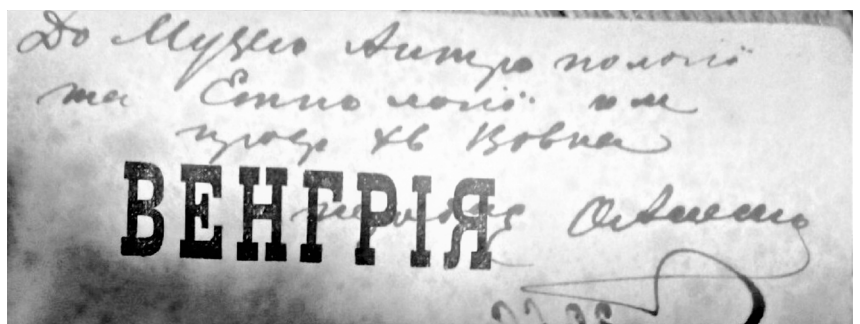 До Музею Антропології
та Етнології ім
проф Хв Вовка
ВЕНГРІЯ